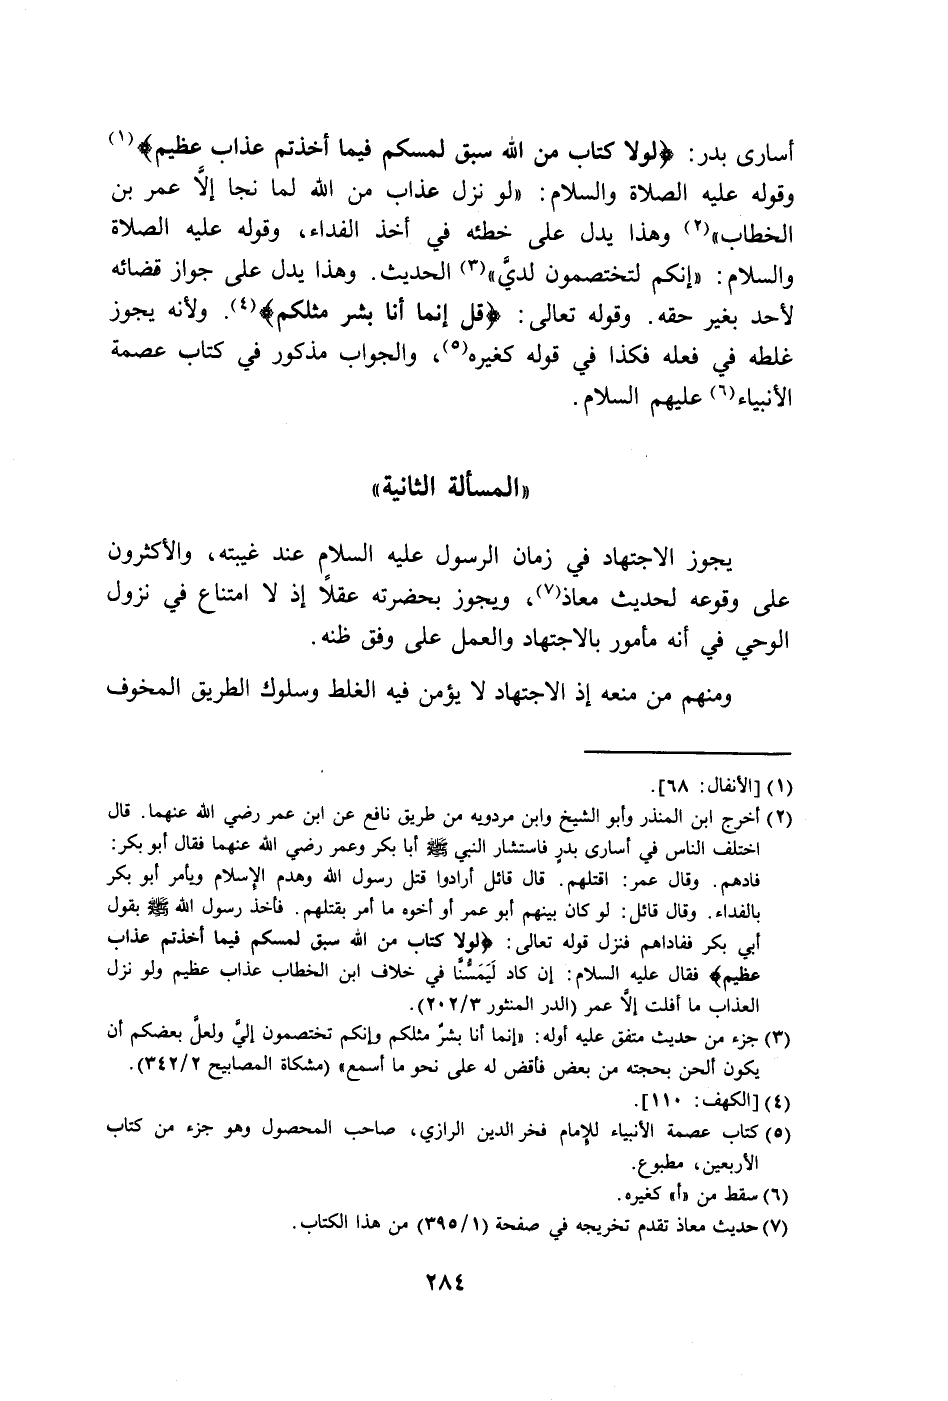 أسارى بدر: ﴿لولا كتاب من الله سبق لمسكم فيما أخذتم عذاب عظيم﴾(١)
وقوله عليه الصلاة والسلام: «لو نزل عذاب من الله لما نجا إلَّا عمر بن
الخطاب»(٢) وهذا يدل على خطئه في أخذ الفداء، وقوله عليه الصلاة
والسلام: «إنكم لتختصمون لديَّ»(٣) الحديث. وهذا يدل على جواز قضائه
لأحد بغير حقه. وقوله تعالى: ﴿قل إنما أنا بشر مثلكم﴾(٤). ولأنه يجوز
غلطه في فعله فكذا في قوله كغيره(٥)، والجواب مذكور في كتاب عصمة
الأنبياء(٦) عليهم السلام.
«المسألة الثانية»
يجوز الاجتهاد في زمان الرسول عليه السلام عند غيبته، والأكثرون
على وقوعه لحديث معاذ(٧)، ويجوز بحضرته عقلًا إذ لا امتناع في نزول
الوحي في أنه مأمور بالاجتهاد والعمل على وفق ظنه.
ومنهم من منعه إذ الاجتهاد لا يؤمن فيه الغلط وسلوك الطريق المخوف
(١) [الأنفال: ٦٨].
(٢) أخرج ابن المنذر وأبو الشيخ وابن مردويه من طريق نافع عن ابن عمر رضي الله عنهما. قال
اختلف الناس في أسارى بدرٍ فاستشار النبي ﷺ أبا بكر وعمر رضي الله عنهما فقال أبو بكر:
فادهم. وقال عمر: اقتلهم. قال قائل أرادوا قتل رسول الله وهدم الإسلام ويأمر أبو بكر
بالفداء. وقال قائل: لو كان بينهم أبو عمر أو أخوه ما أمر بقتلهم. فأخذ رسول الله ﷺ بقول
أبي بكر ففاداهم فنزل قوله تعالى: ﴿لولا كتاب من الله سبق لمسكم فيما أخذتم عذاب
عظيم﴾ فقال عليه السلام: إن كاد لَيَمَسُّنَّا في خلاف ابن الخطاب عذاب عظيم ولو نزل
العذاب ما أفلت إلَّا عمر (الدر المنثور ٢٠٢/٣).
(٣) جزء من حديث متفق عليه أوله: «إنما أنا بشرٌ مثلكم وإنكم تختصمون إليَّ ولعلَّ بعضكم أن
يكون ألحن بحجته من بعض فأقض له على نحو ما أسمع» (مشكاة المصابيح ٣٤٢/٢).
(٤) [الكهف: ١١٠].
(٥) كتاب عصمة الأنبياء للإمام فخر الدين الرازي، صاحب المحصول وهو جزء من كتاب
الأربعين، مطبوع.
(٦) سقط من «أ» كغيره.
(٧) حديث معاذ تقدم تخريجه في صفحة (٣٩٥/١) من هذا الكتاب.
٢٨٤